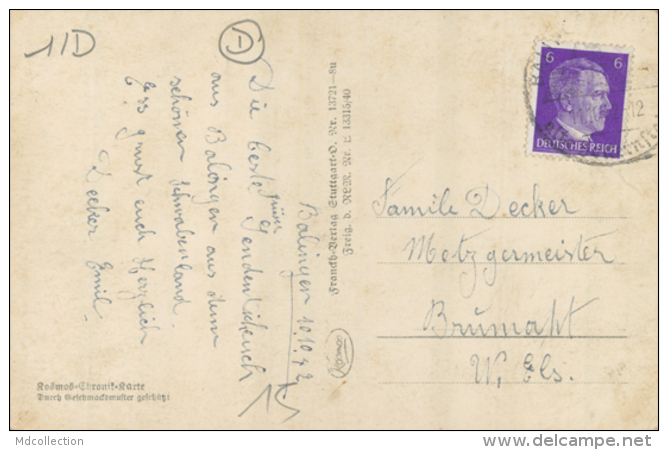 11D
D
Balingen 10.10.42
Die beste Grüße
sendendlicheuch
aus Balingen aus dem
schönen Schwabenland.
Es grüst euch Herzlich
Decker Emil.
Kosmos-Chronik-Karte
Durch Geschmacksmuster geschützt
Franckh-Verlag Stuttgart-O. Nr. 13721-8u
Freig. d. REM. Nr. E 13315/40
6 6
DEUTSCHES REICH
12
Familie Decker
Metzgermeister
Brumaht
W, Els.
Mdcollection
delcampe.net